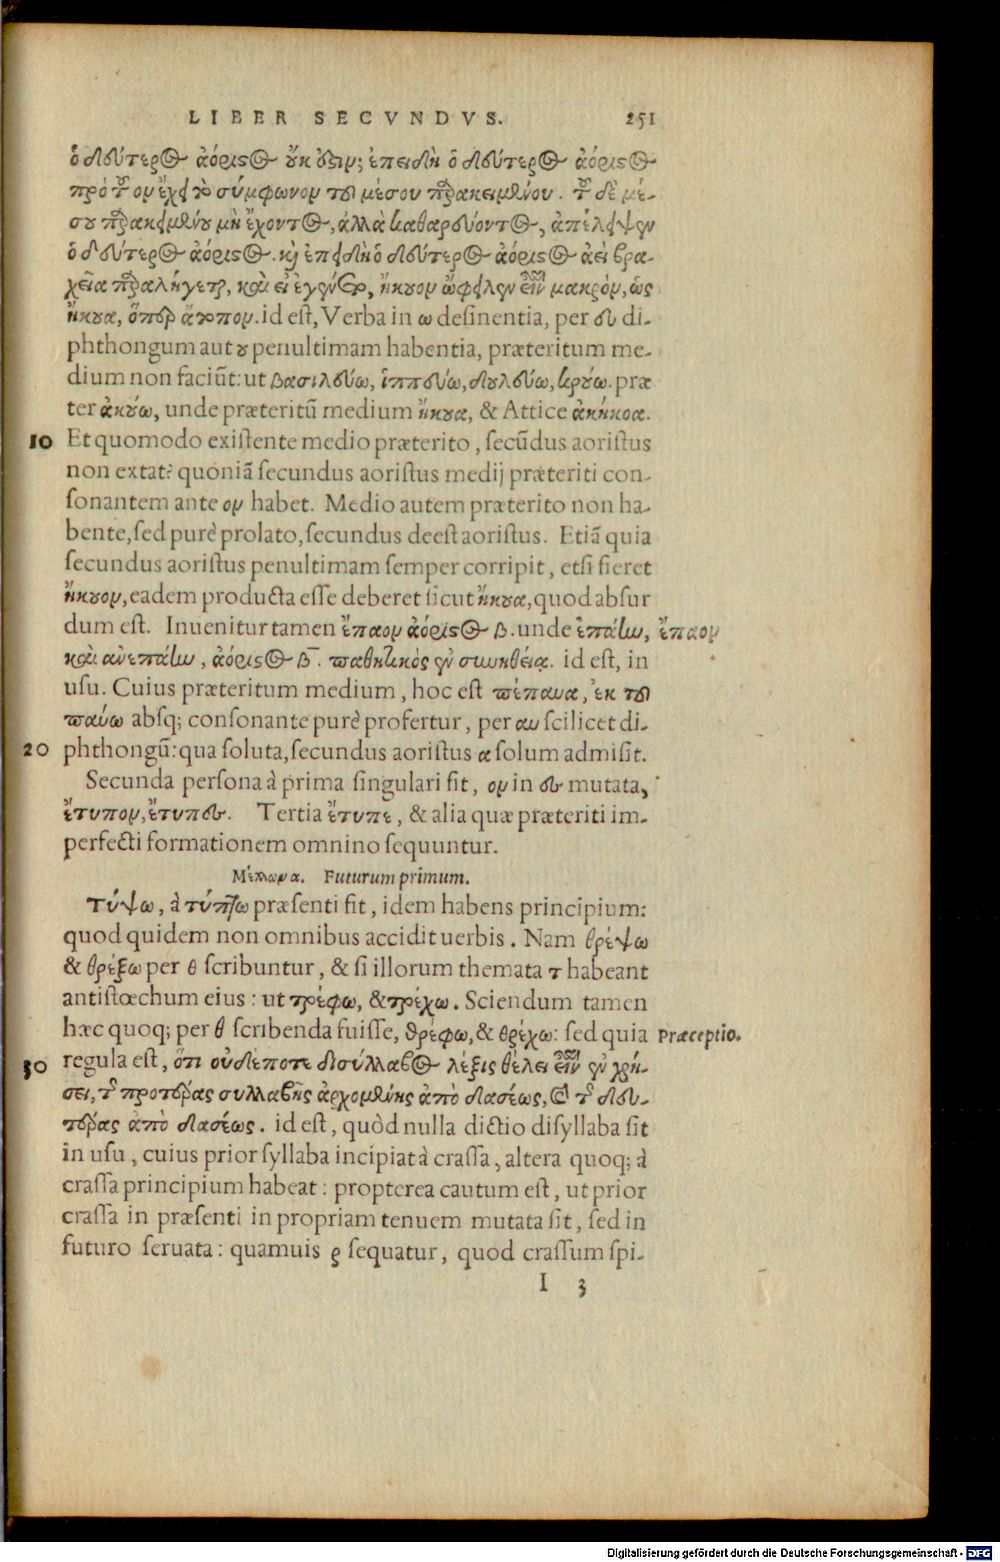 LIBER SECVNDVS. 251
ὁ δεύτερος ἀόριστος οὐκ ἔστιν; ἐπειδὴ ὁ δεύτερος ἀόριστος
πρὸ τοῦ ον ἔχει τὸ σύμφωνον τοῦ μέσου παρακειμένου. τοῦ δὲ μέ-
σου παρακειμένου μὴ ἔχοντος, ἀλλὰ καθαρεύοντος, ἀπέλειψεν
ὁ δεύτερος ἀόριστος. καὶ ἐπειδὴ ὁ δεύτερος ἀόριστος ἀεὶ βρα-
χεῖα παραλήγεται, καὶ εἰ ἐγένετο, ἤκουον ὤφειλεν εἶναι μακρὸν, ὡς
ἤκουα, ὅπερ ἄτοπον. id est, Verba in ω desinentia, per ευ di-
phthongum aut ου penultimam habentia, præteritum me-
dium non faciūt: ut βασιλεύω, ἱππεύω, δουλεύω, κρούω. præ
ter ἀκούω, unde præteritū medium ἤκουα, & Attice ἀκήκοα.
10 Et quomodo existente medio præterito, secūdus aoristus
non extat? quoniā secundus aoristus medij præteriti con-
sonantem ante ον habet. Medio autem præterito non ha-
bente, sed purè prolato, secundus deest aoristus. Etiā quia
secundus aoristus penultimam semper corripit, etsi fieret
ἤκουον, eadem producta esse deberet sicut ἤκουα, quod absur
dum est. Inuenitur tamen ἔπαον ἀόριστος β. unde ἐπάην, ἔπαον
καὶ ἀνεπάην, ἀόριστος β̄. παθητικὸς ἐν συνηθείᾳ. id est, in
usu. Cuius præteritum medium, hoc est πέπαυα, ἐκ τοῦ
παύω absq; consonante purè profertur, per αυ scilicet di-
20 phthongū: qua soluta, secundus aoristus α solum admisit.
Secunda persona à prima singulari fit, ον in ες mutata,
ἔτυπον, ἔτυπες. Tertia ἔτυπε, & alia quæ præteriti im-
perfecti formationem omnino sequuntur.
Μέλλοντα. Futurum primum.
Τύψω, à τύπτω præsenti fit, idem habens principium:
quod quidem non omnibus accidit uerbis. Nam θρέψω
& θρέξω per θ scribuntur, & si illorum themata τ habeant
antistœchum eius: ut τρέφω, & τρέχω. Sciendum tamen
hæc quoq; per θ scribenda fuisse, θρέφω, & θρέχω: sed quia Præceptio.
30 regula est, ὅτι οὐδέποτε δισύλλαβος λέξις θέλει εἶναι ἐν χρή-
σει, τῆς προτέρας συλλαβῆς ἀρχομένης ἀπὸ δασέως, καὶ τῆς δευ-
τέρας ἀπὸ δασέως. id est, quòd nulla dictio disyllaba sit
in usu, cuius prior syllaba incipiat à crassa, altera quoq; à
crassa principium habeat: propterea cautum est, ut prior
crassa in præsenti in propriam tenuem mutata sit, sed in
futuro seruata: quamuis ρ sequatur, quod crassum spi-
I 3
Digitalisierung gefördert durch die Deutsche Forschungsgemeinschaft - DFG